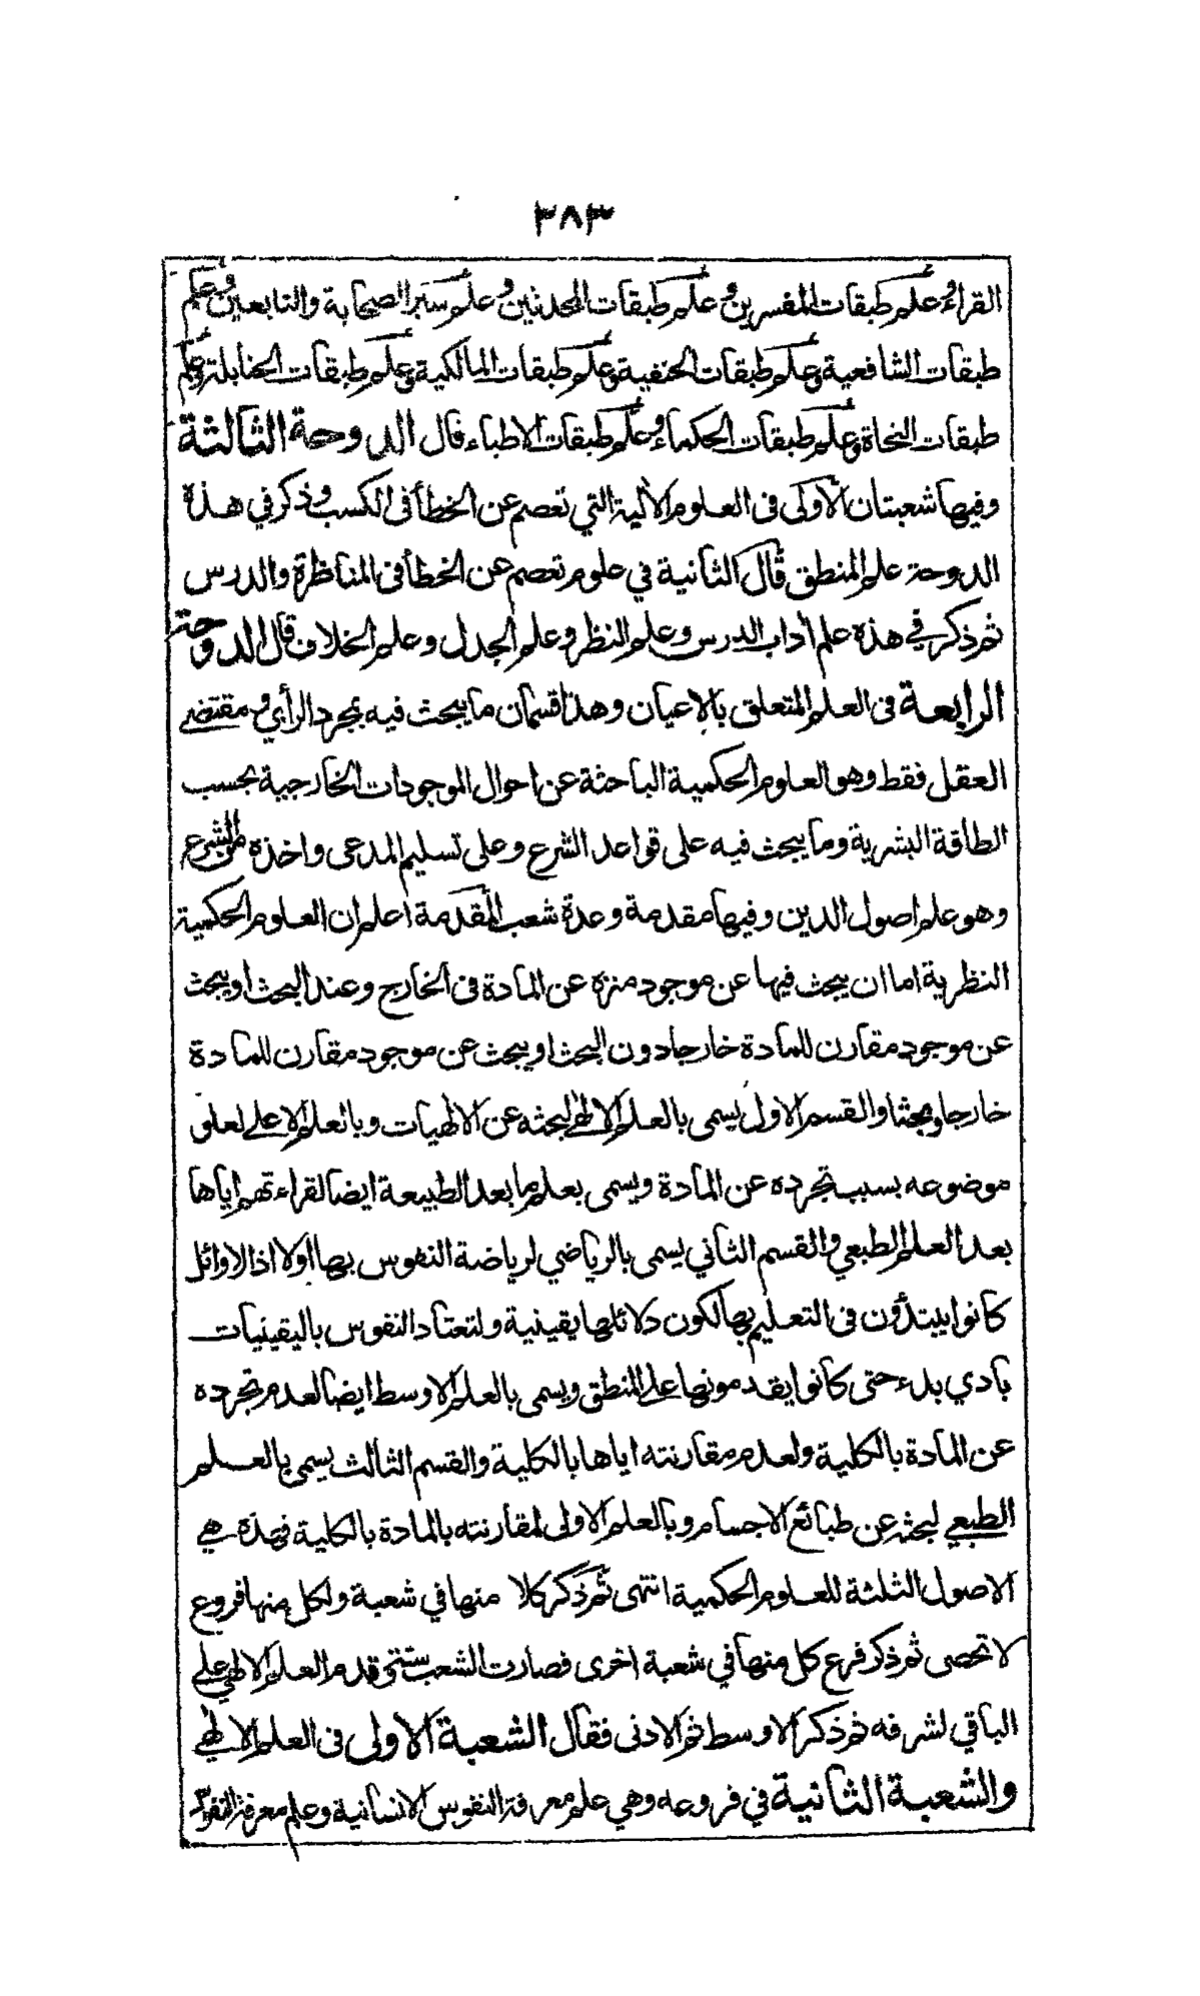 ٣٨٣
القراء وعلم طبقات المفسرين وعلم طبقات المحدثين وعلم سير الصحابة والتابعين وعلم
طبقات الشافعية وعلم طبقات الحنفية وعلم طبقات المالكية وعلم طبقات الحنابلة وعلم
طبقات النحاة وعلم طبقات الحكماء وعلم طبقات الاطباء قال الدوحة الثالثة
وفيها شعبتان الأولى فى العلوم الألية التي تعصم عن الخطأ فى الكسب وذكر في هذه
الدوحة علم المنطق قال الثانية في علوم تعصم عن الخطأ فى المناظرة والدرس
ثم ذكر في هذه علم أداب الدرس وعلم النظر وعلم الجدل وعلم الخلاف قال الدوحة
الرابعة فى العلم المتعلق بالاعيان وهذا قسمان ما يبحث فيه بمجرد الرأي ومقتضى
العقل فقط وهو العلوم الحكمية الباحثة عن احوال الموجودات الخارجية بحسب
الطاقة البشرية وما يبحث فيه على قواعد الشرع وعلى تسليم المدعى واخذه من الشرع
وهو علم اصول الدين وفيها مقدمة وعدة شعب المقدمة اعلم ان العلوم الحكمية
النظرية اما ان يبحث فيها عن موجود منزه عن المادة فى الخارج وعند البحث او يبحث
عن موجود مقارن للمادة خارجا دون البحث او يبحث عن موجود مقارن للمادة
خارجا وبحثا والقسم الاول يسمى بالعلم الالهي لبحثه عن الالهيات وبالعلم الاعلى لعلو
موضوعه بسبب تجرده عن المادة ويسمى بعلم ما بعد الطبيعة ايضا لقراءتهم اياها
بعد العلم الطبعي والقسم الثاني يسمى بالرياضي لرياضة النفوس بها اولا اذ الاوائل
كانوا يبتدؤن فى التعليم بها لكون دلائلها يقينية ولتعتاد النفوس باليقينيات
بادي بدء حتى كانوا يقدمونها على المنطق ويسمى بالعلم الاوسط ايضا لعدم تجرده
عن المادة بالكلية ولعدم مقارنته اياها بالكلية والقسم الثالث يسمى بالعلم
الطبعي لبحثه عن طبائع الاجسام وبالعلم الاولى لمقارنته بالمادة بالكلية فهذه هي
الاصول الثلثة للعلوم الحكمية انتهى ثم ذكر كلا منها في شعبة ولكل منها فروع
لا تحصى ثم ذكر فرع كل منها في شعبة اخرى فصارت الشعب ستة وقدم العلم الالهي على
الباقي لشرفه ثم ذكر الاوسط ثم الادنى فقال الشعبة الاولى فى العلم الالهي
والشعبة الثانية في فروعه وهي علم معرفة النفوس الانسانية وعلم معرفة النفوس